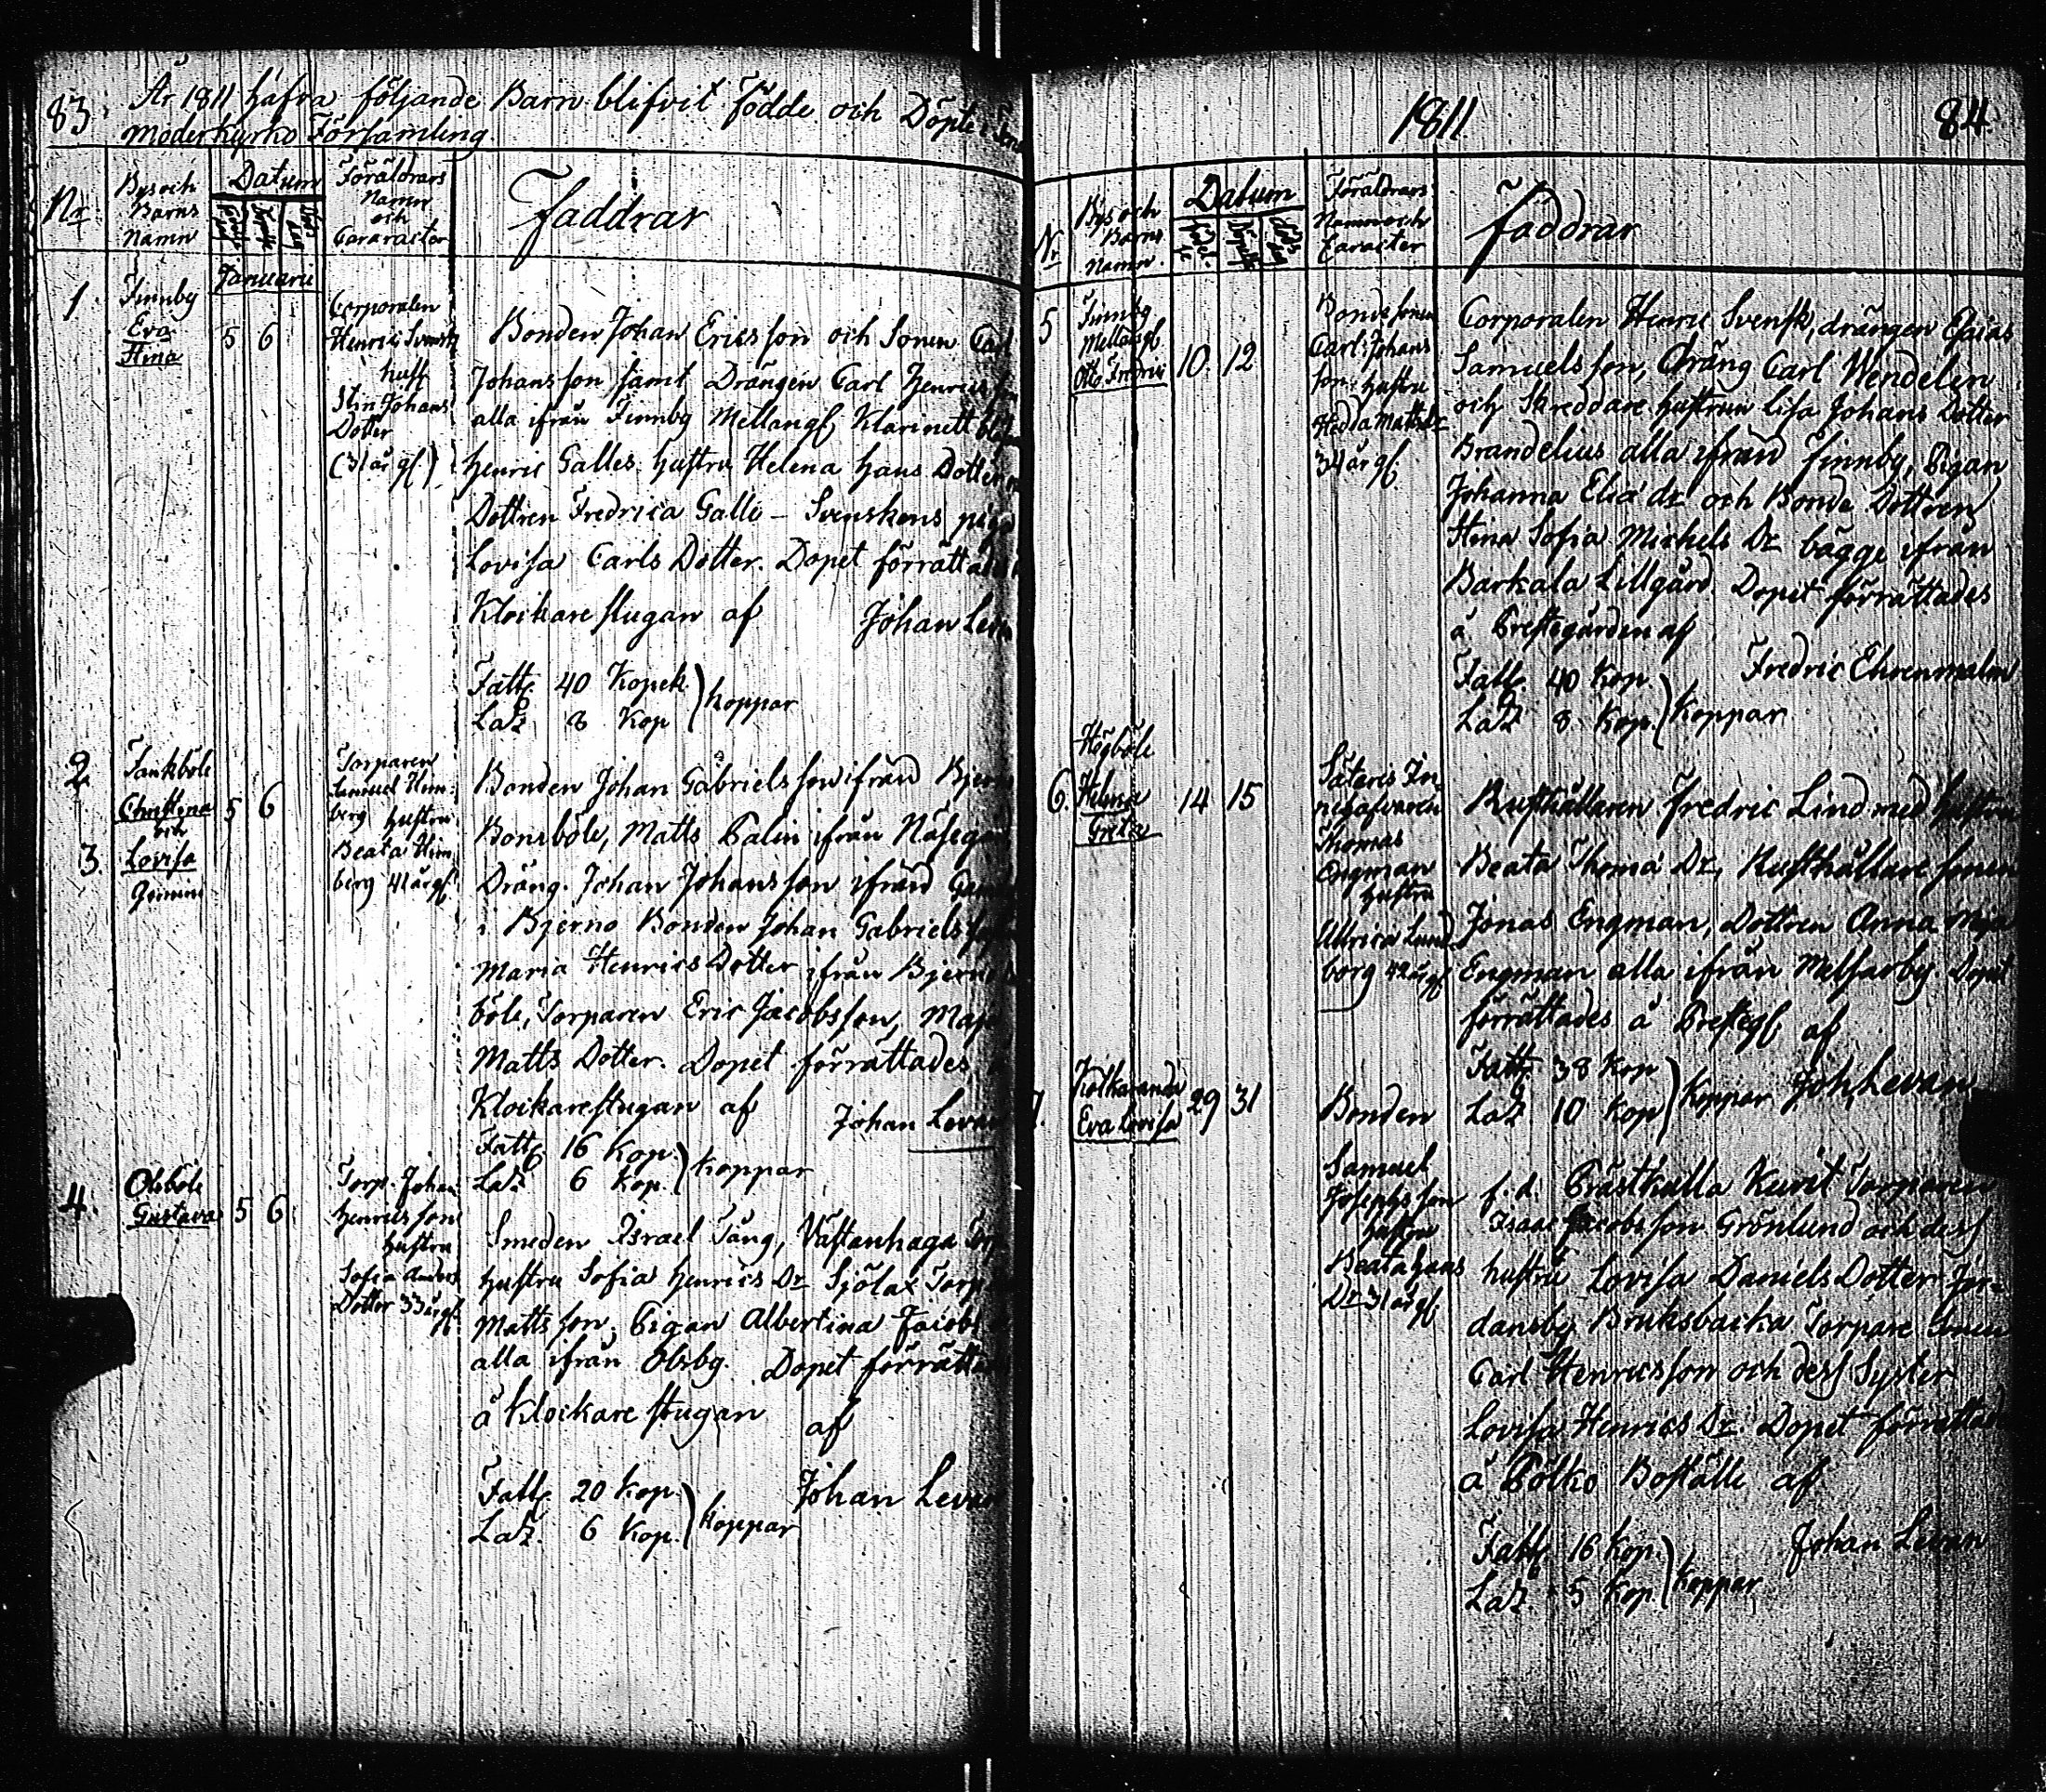 83. År 1811 hafva följande Barn blifvit Födde och Döpte i
Moderkyrko Församling
Nr
Bys och
Barns
Namn
Datum
Föräldrars
Namn
och
Caracter
Faddrar
Januarii
1.
Finnby
Eva
Stina
5 6
Corporalen
Henric Svensk
hust
Stin Johans
Dotter
(31 år gl)
Bonden Johan Ericsson och Sonen Carl
Johansson samt Drängen Carl Henrics
alla ifrån Finnby Mellang. Klarinett
Henric Galles hustru Helena Hans Dotter
Dottren Fredrica Galle – Svenskens piga
Lovisa Carls Dotter. Dopet förrättades
Klockare stugan af Johan Levan
Fatt. 40 Kopek.
Laz. 8 Kop. ) koppar
2.
Tankböle
Christina
och
3. Lovisa
Gemini
5 6
Torparen
Samuel Himberg
hustru
Beata Himberg
41 år gl
Bonden Johan Gabrielsson ifrån
Bonsböle, Matts Palin ifrån Näsegård
Dräng. Johan Johansson ifrån
i Bjerno Bonden Johan Gabriels
Maria Henrics Dotter ifrån
böle, Torparen Eric Jacobsson, Maja
Matts Dotter. Dopet förrättades
Klockarestugan af Johan Levan
Fatt. 16 Kop.
Laz. 6 Kop. ) koppar
4.
Olsböle
Gustava
5 6
Torp. Johan
Henricsson
hustru
Sofia Anders
Dotter 33 år gl.
Smeden Israel Tång, Västanhaga Torp
hustru Sofia Henrics Dr Sjölax Torp
Mattsson, Pigan Albertina Jacobs
alla ifrån Olsby. Dopet förrättades
å Klockare stugan af
Fatt. 20 Kop.
Laz. 6 Kop. ) koppar
Johan Levan
1811
84.
Nr
Bys och
Barns
Namn
Datum
Föräldrars
Namn och
Caracter
Faddrar
5
Finnby
Mellang.
Otto Fredric
10. 12
Bondesonen
Carl Johans
son hustru
Hedda Matts Dr
34 år gl.
Corporalen Henric Svensk, drängen Esaias
Samuelsson, Dräng Carl Wendelin
och Skreddare hustrun Lisa Johans Dotter
Brandelius alla ifrån Finnby, Pigan
Johanna Elia dr och Bonde Dottren
Stina Sofia Michels Dr bägge ifrån
Barkala Lillgård. Dopet förrättades
å Prestgården af
Fredric Ehrenmalm
Fatt. 40 Kop.
Laz. 8 Kop. ) koppar
6.
Högböle
Helena
Greta
14 15
Säteris Innehafvaren
Thomas
Engman
hustru
Ullrica Lundborg
42 år gl
Rusthållaren Fredric Lind med hustru
Beata Thoma Dr, Rusthållare sonen
Jonas Engman, Dottren Anna Maja
Engman alla ifrån Melfarby. Dopet
förrättades å Prestg. af
Fatt. 38 Kop
Laz. 10 Kop ) koppar Joh. Levan
7.
Kolkaranda
Eva Lovisa
29 31
Bonden
Samuel
Josephsson
hustru
Beata Hans
Dr 31 år gl.
f. d. Prästkulla Kurit Torparen
Isaac Jacobsson Grönlund och dess
hustru Lovisa Daniels Dotter Jordansby
Bruksbacka Torpare Sonen
Carl Henricsson och dess Syster
Lovisa Henrics Dr. Dopet förrättades
å Pölkö Boställe af
Johan Levan
Fatt. 16 Kop.
Laz. 5 Kop. ) koppar